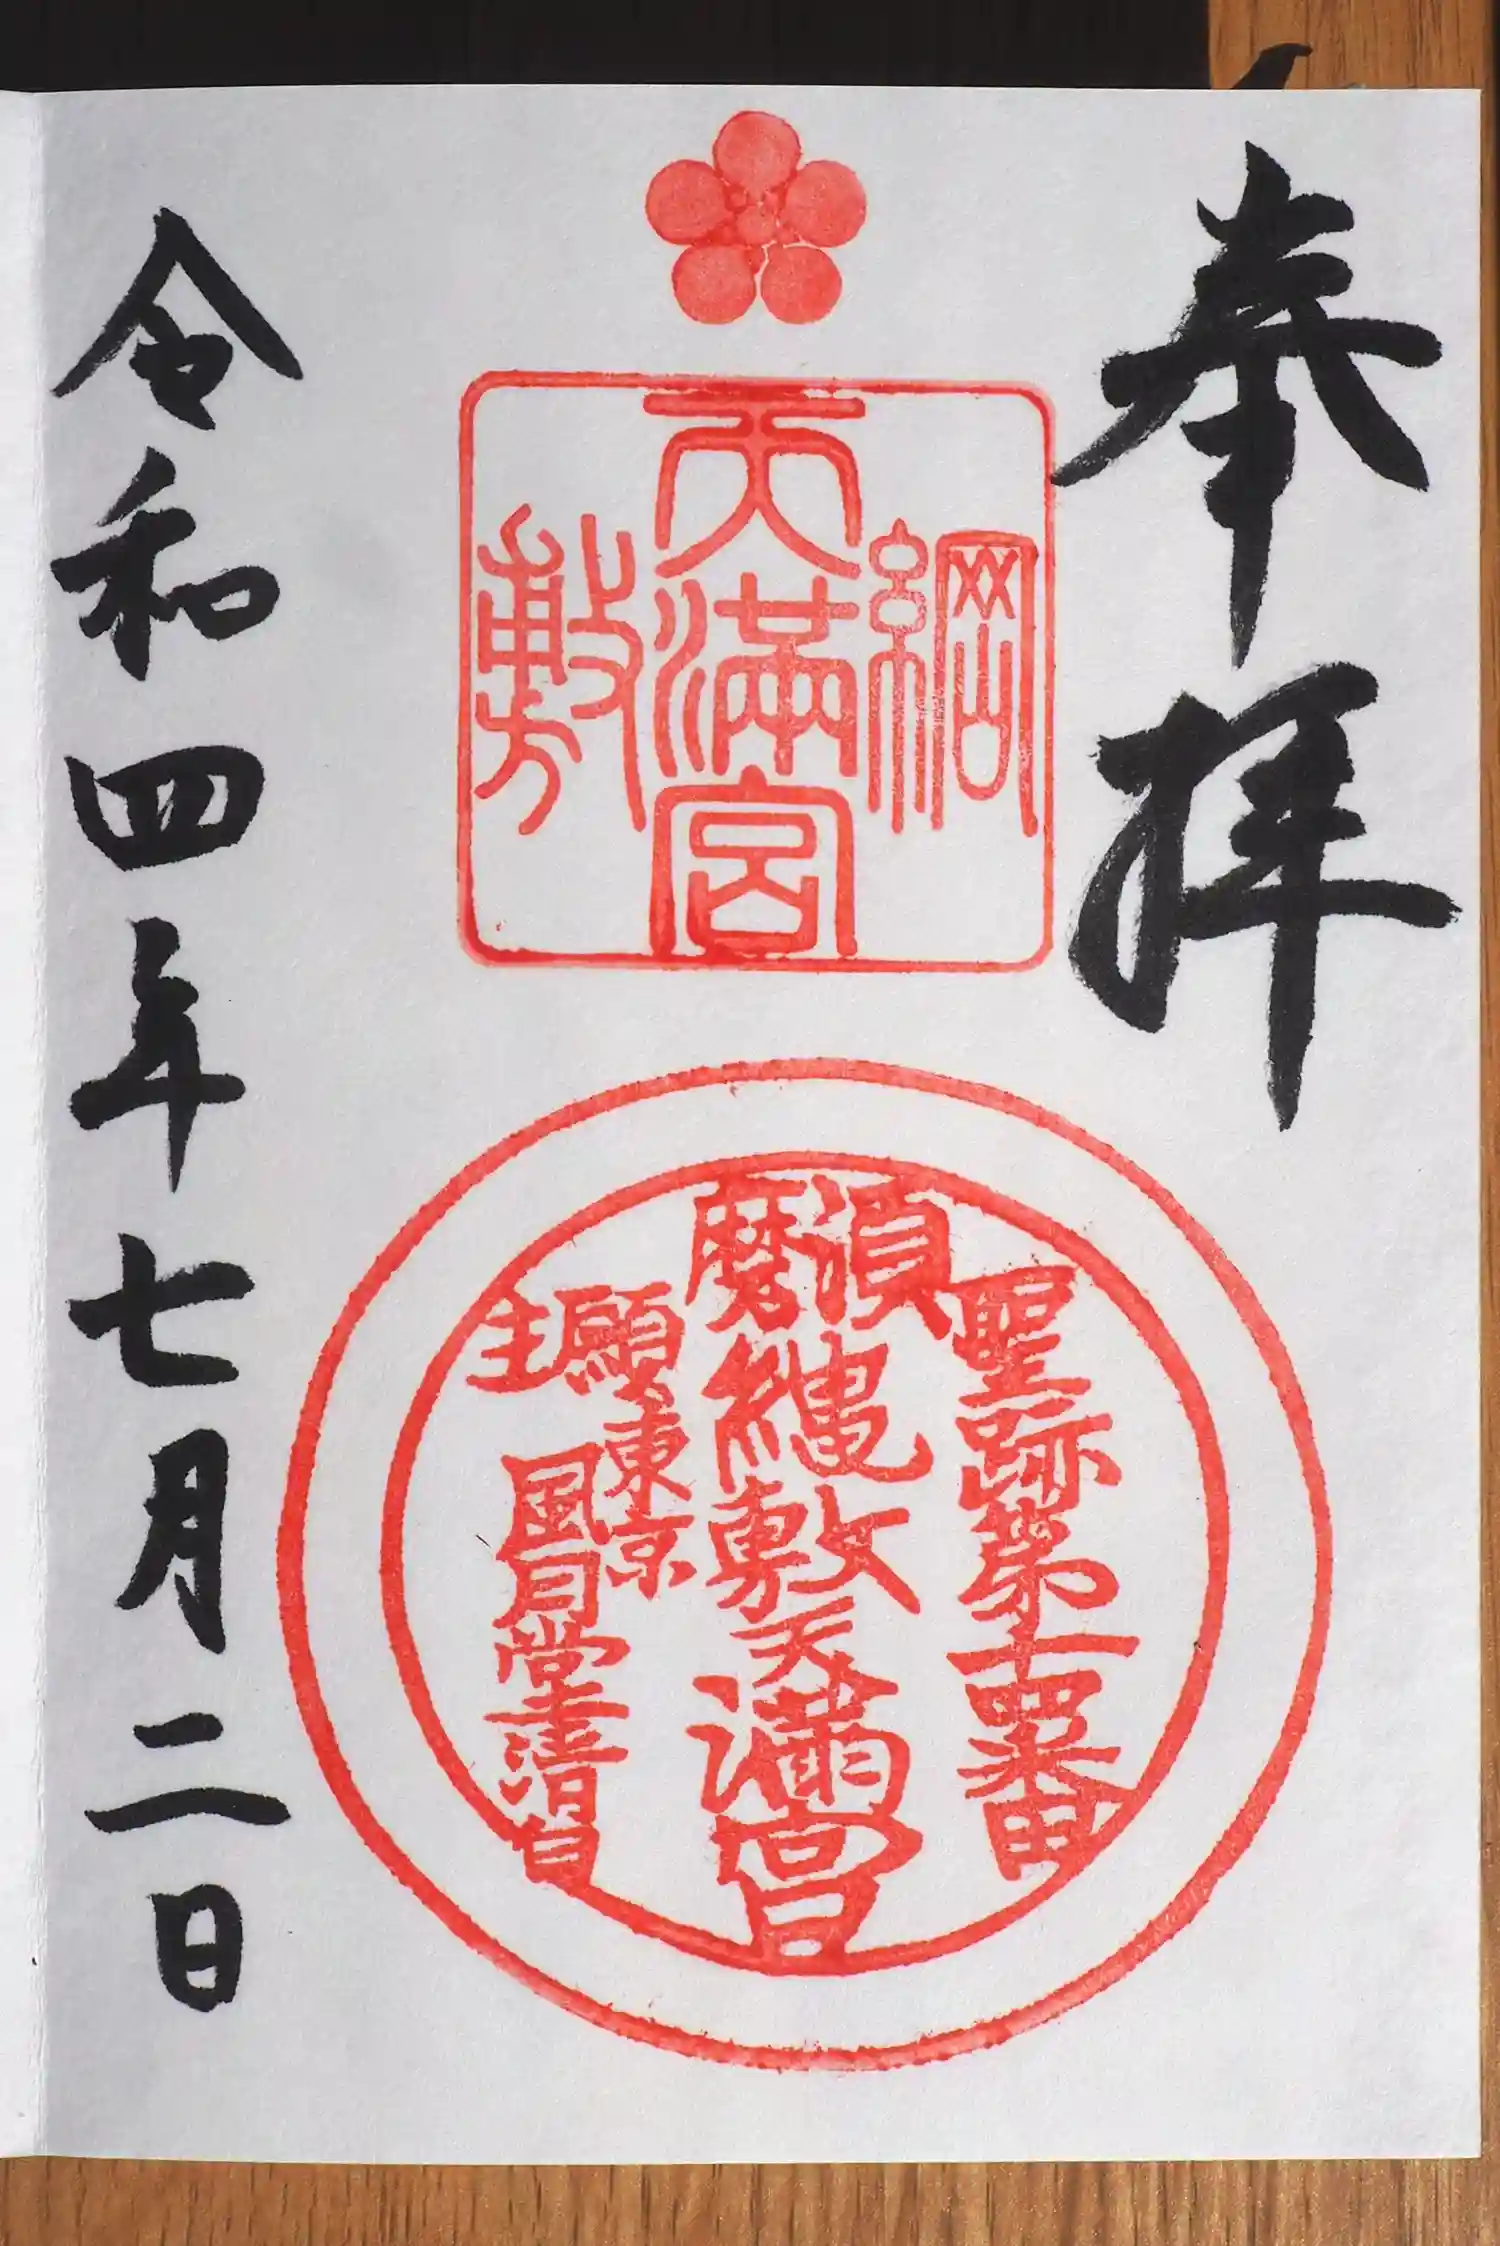 奉拝
綱
天満宮
敷
聖跡第十四番
須磨
縄敷天満宮
願主
東京
風月堂清白
令和四年七月二日